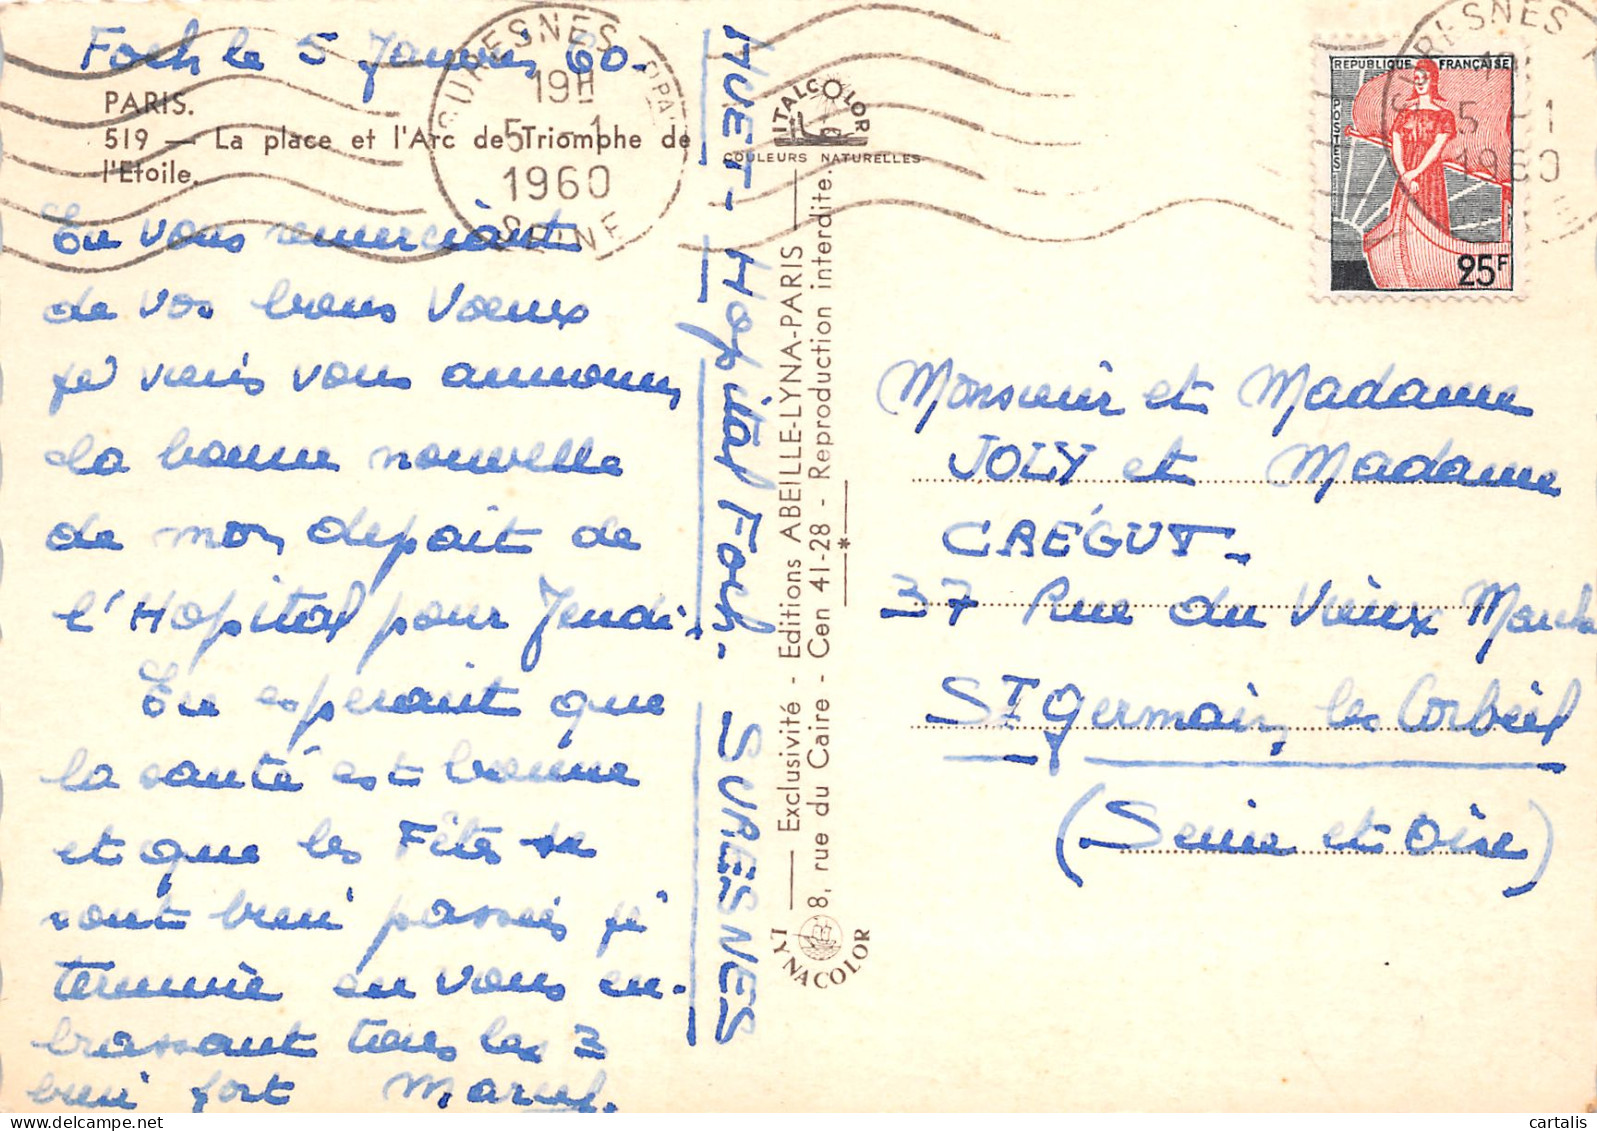 Foch le 5 Janvier 60.
PARIS.
519 — La place et l'Arc de Triomphe de
l'Etoile.
En vous remerciant
de vos bons Voeux
je viens vous annoncer
la bonne nouvelle
de mon depart de
l'Hopital pour Jeudi.
En esperant que
la santé est bonne
et que les Fêtes se
sont bien passées je
termine en vous em-
brassant tous les 3
bien fort Marcel.
SURESNES PPAL
19H
5 -1
1960
SEINE
HUET - Hopital Foch. SURESNES
ITALCOLOR
COULEURS NATURELLES
Exclusivité - Editions ABEILLE-LYNA-PARIS
8, rue du Caire - Cen 41-28 - Reproduction interdite.
LYNACOLOR
SURESNES P
19H
5 -1
1960
REPUBLIQUE FRANÇAISE
POSTES
25F
Monsieur et Madame
JOLY et Madame
CREGUT -
37 Rue du Vieux Marché
ST Germain les Corbeil
(Seine et Oise)
cartalis